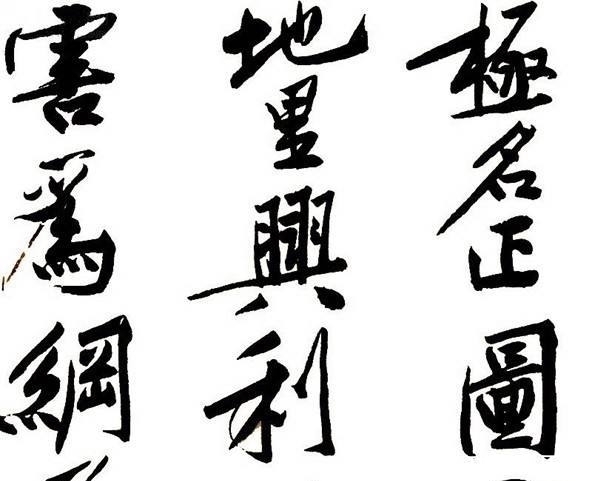 極名正圖
地里興利
害爲綱